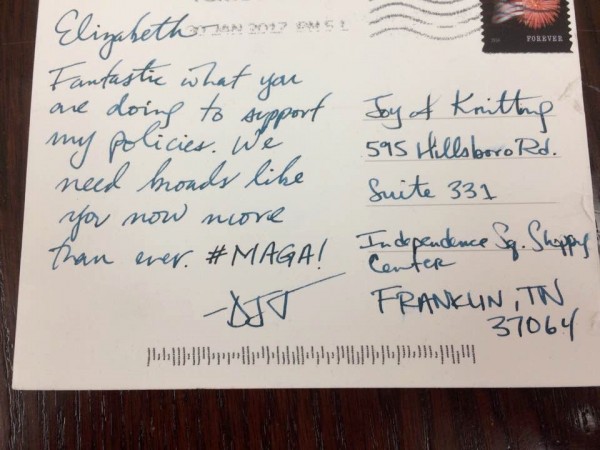 Elizabeth
30 JAN 2017 PM 5 L
FOREVER
Fantastic what you
are doing to support
my policies. We
need broads like
you now more
than ever. #MAGA!
-DJT
Joy of Knitting
595 Hillsboro Rd.
Suite 331
Independence Sq. Shopping
Center
FRANKLIN, TN
37064